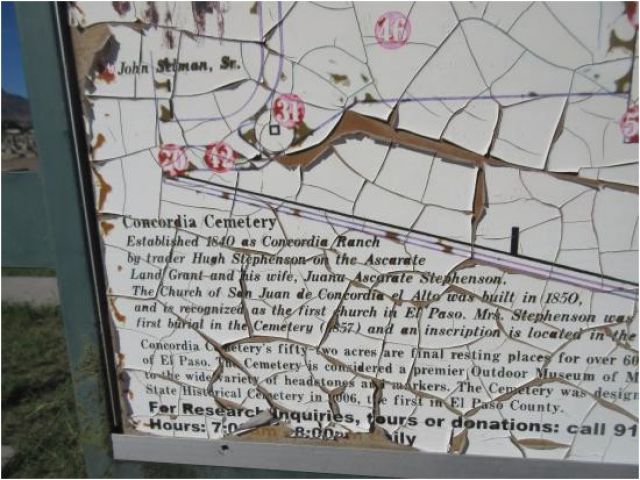 46
John Selman, Sr.
31
Concordia Cemetery
Established 1840 as Concordia Ranch
by trader Hugh Stephenson on the Ascarate
Land Grant and his wife, Juana Ascarate Stephenson.
The Church of San Juan de Concordia el Alto was built in 1850,
and is recognized as the first church in El Paso. Mrs. Stephenson was
first burial in the Cemetery (1857) and an inscription is located in the
Concordia Cemetery's fifty-two acres are final resting places for over 60
of El Paso. The Cemetery is considered a premier Outdoor Museum of M
to the wide variety of headstones and markers. The Cemetery was design
State Historical Cemetery in 2006, the first in El Paso County.
For Research Inquiries, tours or donations: call 91
Hours: 8:00pm Daily